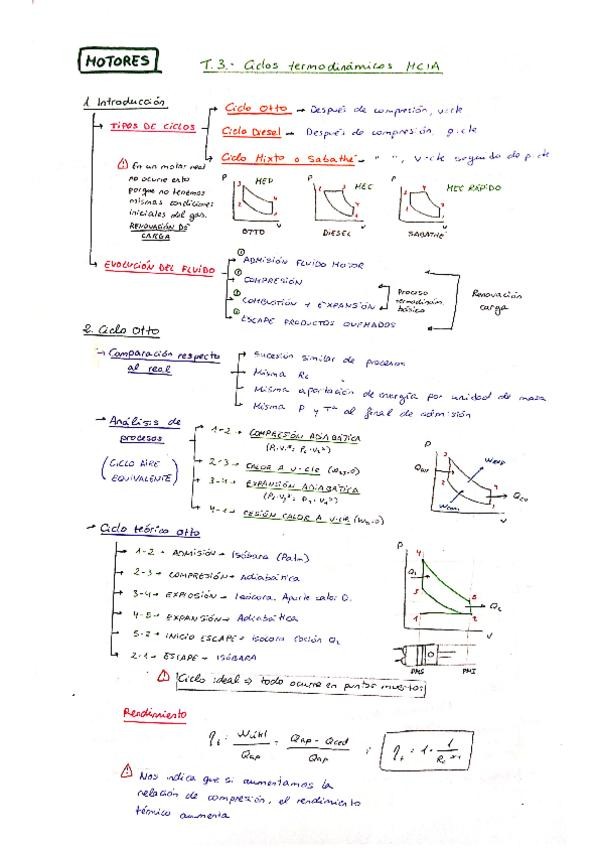 MOTORES
T.3.- Ciclos termodinámicos MCIA
1. Introducción
TIPOS DE CICLOS
Ciclo Otto → Después de compresión, v:cte
Ciclo Diesel → Después de compresión, p:cte
Ciclo Mixto o Sabathé → " ", v:cte seguido de p:cte
En un motor real
no ocurre esto
porque no tenemos
mismas condiciones
iniciales del gas.
RENOVACIÓN DE
CARGA
P MEP V
OTTO
P MEC V
DIESEL
P MEC RÁPIDO V
SABATHÉ
EVOLUCIÓN DEL FLUIDO
① ADMISIÓN FLUIDO MOTOR
② COMPRESIÓN
③ COMBUSTIÓN + EXPANSIÓN
④ ESCAPE PRODUCTOS QUEMADOS
Proceso
termodinám.
básico
Renovación
carga
2. Ciclo Otto
→ Comparación respecto
al real
Sucesión similar de procesos
Misma Rc
Misma aportación de energía por unidad de masa
Misma P y Tª al final de admisión
→ Análisis de
procesos
(CICLO AIRE
EQUIVALENTE)
1-2 → COMPRESIÓN ADIABÁTICA
(P₁·V₁ˠ = P₂·V₂ˠ)
2-3 → CALOR A V:CTE (W₂₃=0)
3-4 → EXPANSIÓN ADIABÁTICA
(P₃·V₃ˠ = P₄·V₄ˠ)
4-1 → CESIÓN CALOR A V:CTE
P 3 Wexp 2 4 1 V
→ Ciclo teórico Otto
1-2 → ADMISIÓN → Isóbara (Patm)
2-3 → COMPRESIÓN → Adiabática
3-4 → EXPLOSIÓN → Isócora. Aporte calor Q₁
4-5 → EXPANSIÓN → Adiabática
5-2 → INICIO ESCAPE → Isócora Cesión Q₂
2-1 → ESCAPE → ISÓBARA
P 4 Q₁ 3 5 Q₂ 1 2 V
PMS PMI
Ciclo ideal ⇒ todo ocurre en puntos muertos
Rendimiento
ηt = Wútil / Qap = Qap - Qced / Qap ; ηt = 1 - 1 / Rc ˠ⁻¹
Nos indica que si aumentamos la
relación de compresión, el rendimiento
térmico aumenta